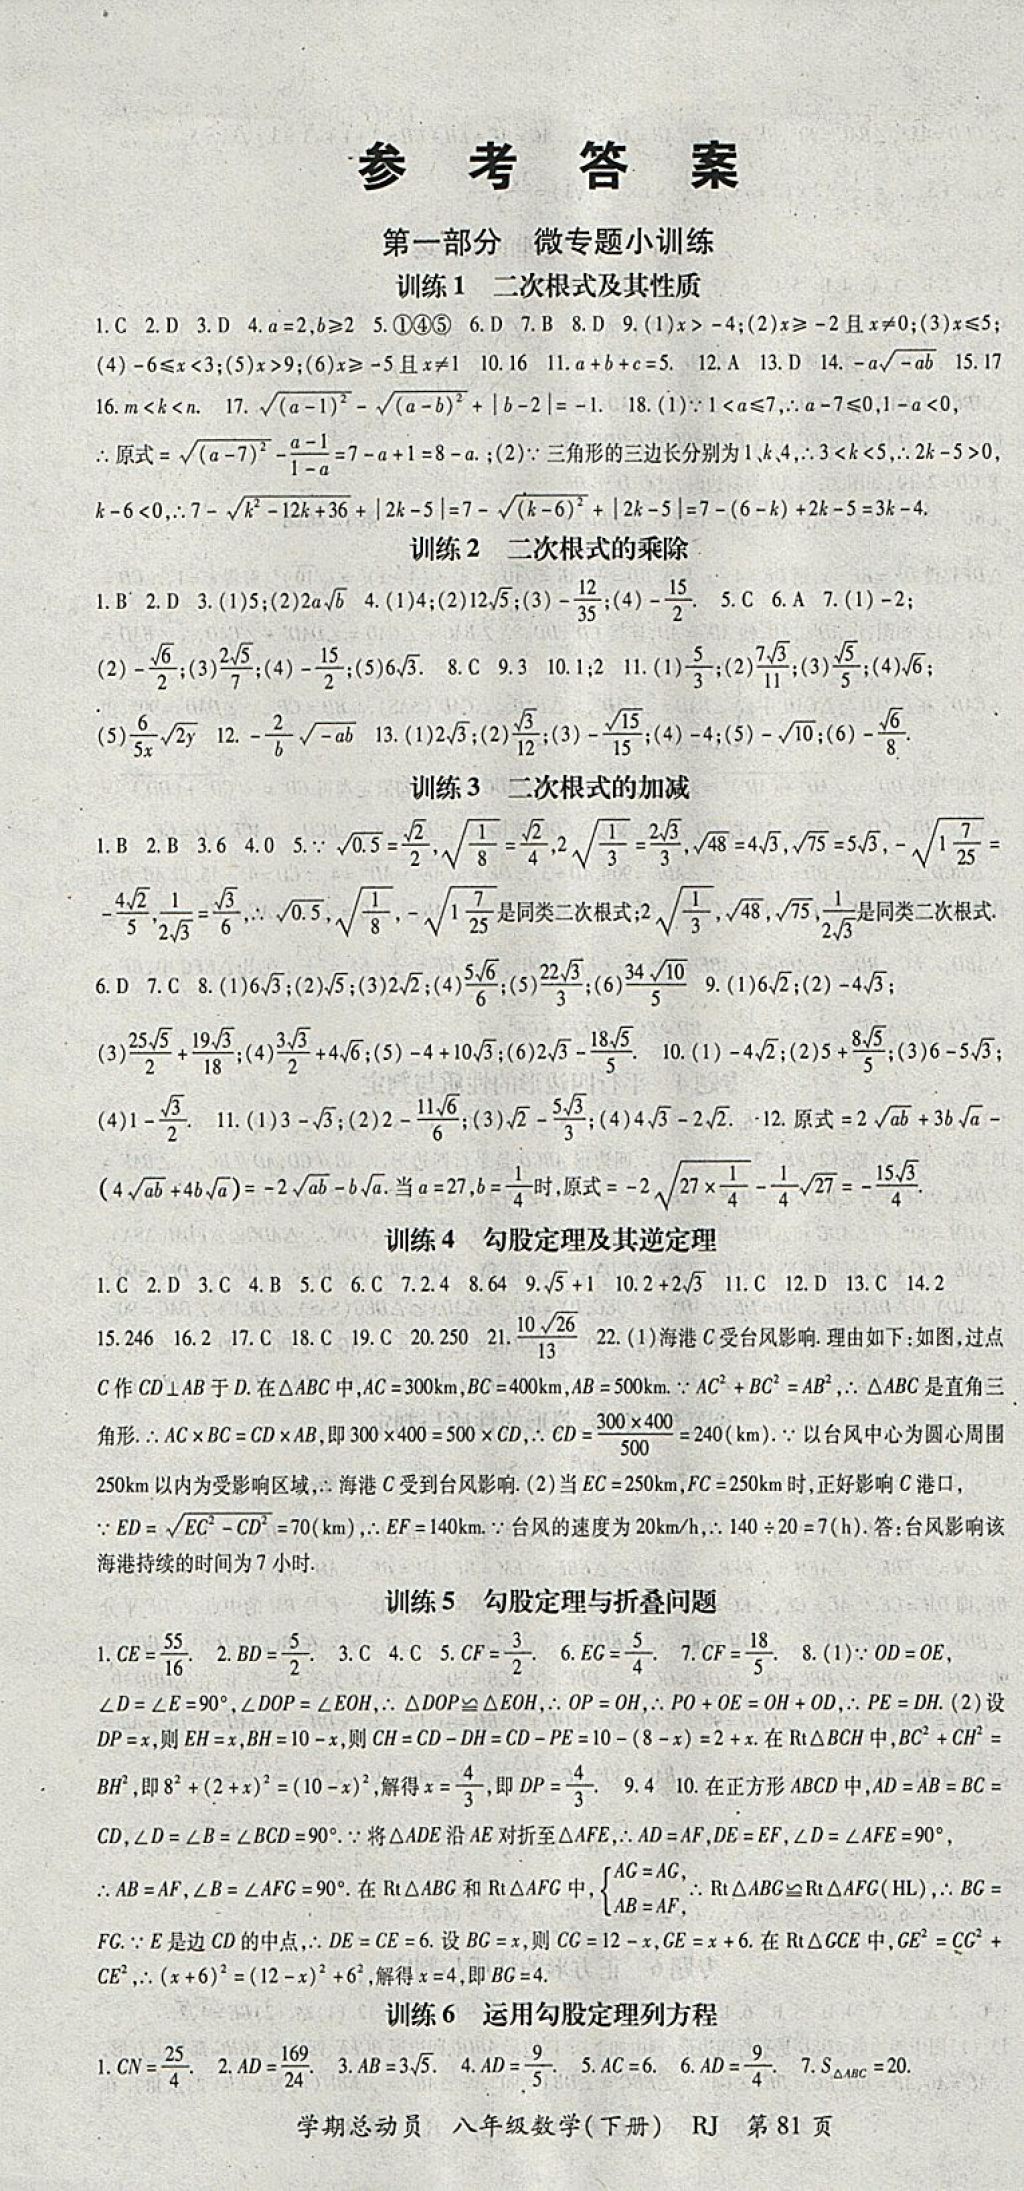 参 考 答 案
第一部分　微专题小训练
训练1　二次根式及其性质
1. C  2. D  3. D  4. a=2,b≥2  5. ①④⑤  6. D  7. B  8. D  9. (1)x>-4;(2)x≥-2且x≠0;(3)x≤5;
(4)-6≤x<3;(5)x>9;(6)x≥-5且x≠1  10. 16  11. a+b+c=5.  12. A  13. D  14. -a√(-ab)  15. 17
16. m<k<n.  17. √((a-1)²)-√((a-b)²)+|b-2|=-1.  18. (1)∵1<a≤7,∴a-7≤0,1-a<0,
∴原式=√((a-7)²)-(a-1)/(1-a)=7-a+1=8-a.;(2)∵三角形的三边长分别为1、k、4,∴3<k<5,∴2k-5>0,
k-6<0,∴7-√(k²-12k+36)+|2k-5|=7-√((k-6)²)+|2k-5|=7-(6-k)+2k-5=3k-4.
训练2　二次根式的乘除
1. B  2. D  3. (1)5;(2)2a√b  4. (1)4;(2)12√5;(3)-12/35;(4)-15/2.  5. C  6. A  7. (1)-2;
(2)-√6/2;(3)2√5/7;(4)-15/2;(5)6√3.  8. C  9. 3  10. 1;2  11. (1)5/3;(2)7√3/11;(3)√5/5;(4)√6;
(5)6/5x √2y  12. -2/b √(-ab)  13. (1)2√3;(2)√3/12;(3)-√15/15;(4)-4;(5)-√10;(6)-√6/8.
训练3　二次根式的加减
1. B  2. B  3. 6  4. 0  5. ∵√0.5=√2/2,√(1/8)=√2/4,2√(1/3)=2√3/3,√48=4√3,√75=5√3,-√(1 7/25)=
-4√2/5,1/(2√3)=√3/6,∴√0.5,√(1/8),-√(1 7/25)是同类二次根式;2√(1/3),√48,√75,1/(2√3)是同类二次根式.
6. D  7. C  8. (1)6√3;(2)√5;(3)2√2;(4)5√6/6;(5)22√3/3;(6)34√10/5  9. (1)6√2;(2)-4√3;
(3)25√5/2+19√3/18;(4)3√3/2+4√6;(5)-4+10√3;(6)2√3-18√5/5.  10. (1)-4√2;(2)5+8√5/5;(3)6-5√3;
(4)1-√3/2.  11. (1)3-√3;(2)2-11√6/6;(3)√2-5√3/3;(4)4√3-2√2.  12. 原式=2√ab+3b√a-
(4√ab+4b√a)=-2√ab-b√a.当a=27,b=1/4时,原式=-2√(27×1/4)-1/4√27=-15√3/4.
训练4　勾股定理及其逆定理
1. C  2. D  3. C  4. B  5. C  6. C  7. 2.4  8. 64  9. √5+1  10. 2+2√3  11. C  12. D  13. C  14. 2
15. 246  16. 2  17. C  18. C  19. C  20. 250  21. 10√26/13  22. (1)海港C受台风影响.理由如下:如图,过点
C作CD⊥AB于D.在△ABC中,AC=300km,BC=400km,AB=500km.∵AC²+BC²=AB²,∴△ABC是直角三
角形.∴AC×BC=CD×AB,即300×400=500×CD,∴CD=300×400/500=240(km).∵以台风中心为圆心周围
250km以内为受影响区域,∴海港C受到台风影响.(2)当EC=250km,FC=250km时,正好影响C港口,
∵ED=√(EC²-CD²)=70(km),∴EF=140km.∵台风的速度为20km/h,∴140÷20=7(h).答:台风影响该
海港持续的时间为7小时.
训练5　勾股定理与折叠问题
1. CE=55/16.  2. BD=5/2.  3. C  4. C  5. CF=3/2.  6. EG=5/4.  7. CF=18/5.  8. (1)∵OD=OE,
∠D=∠E=90°,∠DOP=∠EOH,∴△DOP≌△EOH,∴OP=OH,∴PO+OE=OH+OD,∴PE=DH.(2)设
DP=x,则EH=x,BH=10-x,则CH=CD-DH=CD-PE=10-(8-x)=2+x.在Rt△BCH中,BC²+CH²=
BH²,即8²+(2+x)²=(10-x)²,解得x=4/3,即DP=4/3.  9. 4  10. 在正方形ABCD中,AD=AB=BC=
CD,∠D=∠B=∠BCD=90°.∵将△ADE沿AE对折至△AFE,∴AD=AF,DE=EF,∠D=∠AFE=90°,
∴AB=AF,∠B=∠AFG=90°.在Rt△ABG和Rt△AFG中,{AG=AG,AB=AF,∴Rt△ABG≌Rt△AFG(HL),∴BG=
FG.∵E是边CD的中点,∴DE=CE=6.设BG=x,则CG=12-x,GE=x+6.在Rt△GCE中,GE²=CG²+
CE²,∴(x+6)²=(12-x)²+6²,解得x=4,即BG=4.
训练6　运用勾股定理列方程
1. CN=25/4.  2. AD=169/24.  3. AB=3√5.  4. AD=9/5.  5. AC=6.  6. AD=9/4.  7. S△ABC=20.
学期总动员　八年级数学(下册)　RJ　第81页